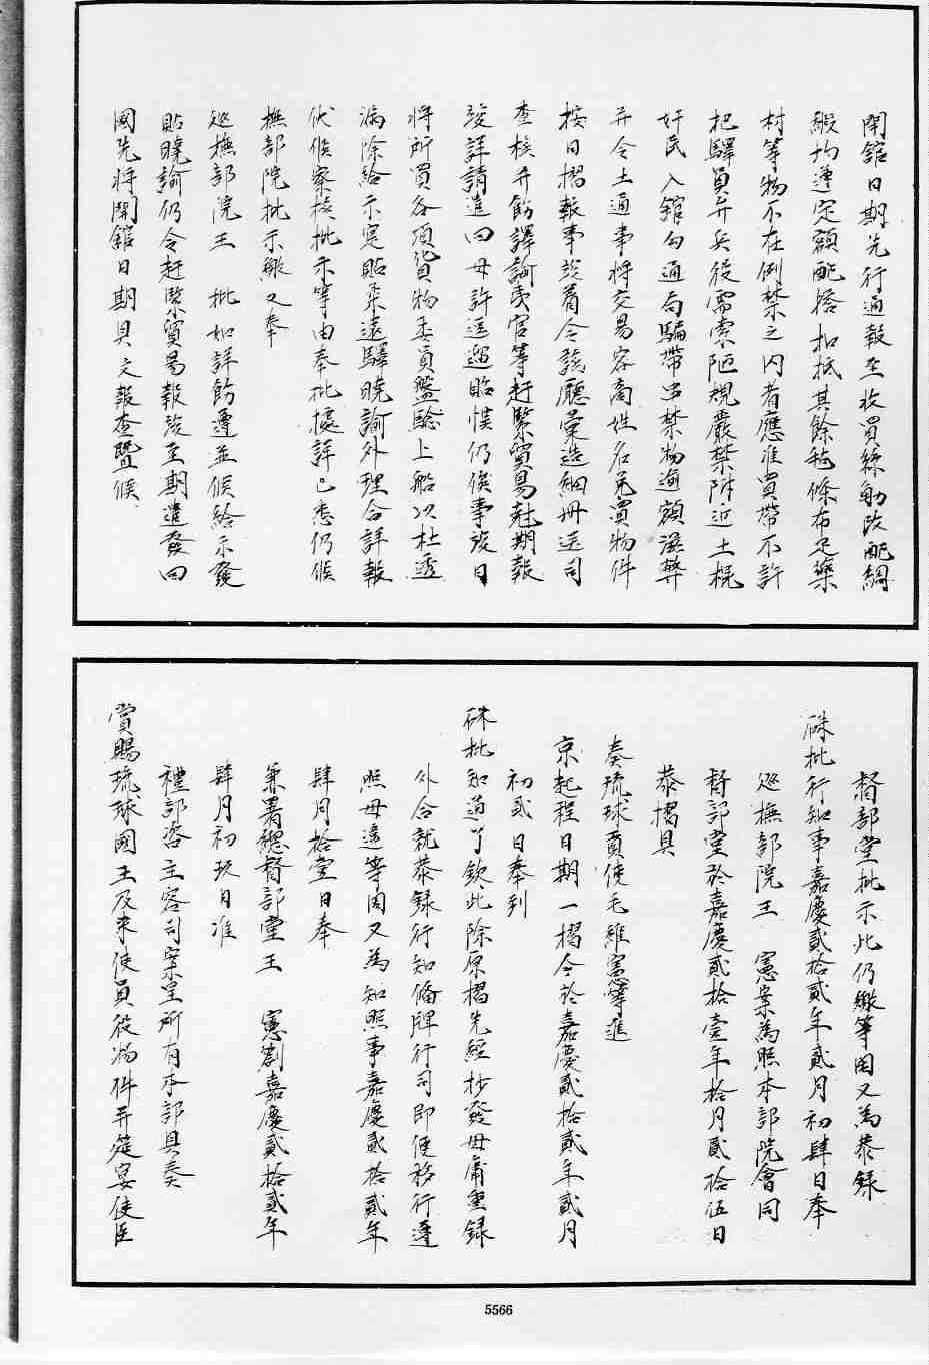 開館日期先行通報至收買絲觔改配綢
緞均遵定額配搭扣抵其餘毡條布疋藥
材等物不在例禁之内者應准買帶不許
把驛員弁兵役需索陋規嚴禁附近土棍
奸民入館勾通局騙帶出禁物逾額滋弊
并令土通事將交易客商姓名兌買物件
按日摺報事竣着令該廳彙造細冊送司
查核并飭譯諭夷官等赶緊貿易尅期報
竣詳請遣回毋許逗遛貽悞仍俟事竣日
將所買各項貨物委員盤驗上船以杜透
漏除給示寔貼柔遠驛曉諭外理合詳報
伏候察核批示等由奉批據詳已悉仍候
撫部院批示繳又奉
巡撫部院王　批如詳飭遵並候給示發
貼曉諭仍令赶緊貿易報竣至期遣發回
國先將開館日期具文報查暨候
督部堂批示此仍繳等因又為恭錄
硃批行知事嘉慶貳拾貳年貳月初肆日奉
巡撫部院王　憲案為照本部院會同
督部堂於嘉慶貳拾壹年拾月貳拾伍日
恭摺具
奏琉球貢使毛維憲等進
京起程日期一摺今於嘉慶貳拾貳年貳月
初貳日奉到
硃批知道了欽此除原摺先經抄發毋庸重錄
外合就恭錄行知備牌行司即便移行遵
照毋違等因又為知照事嘉慶貳拾貳年
肆月拾壹日奉
兼署總督部堂王　憲劄嘉慶貳拾貳年
肆月初玖日准
禮部咨主客司案呈所有本部具奏
賞賜琉球國王及来使員役物件并筵宴使臣
5566